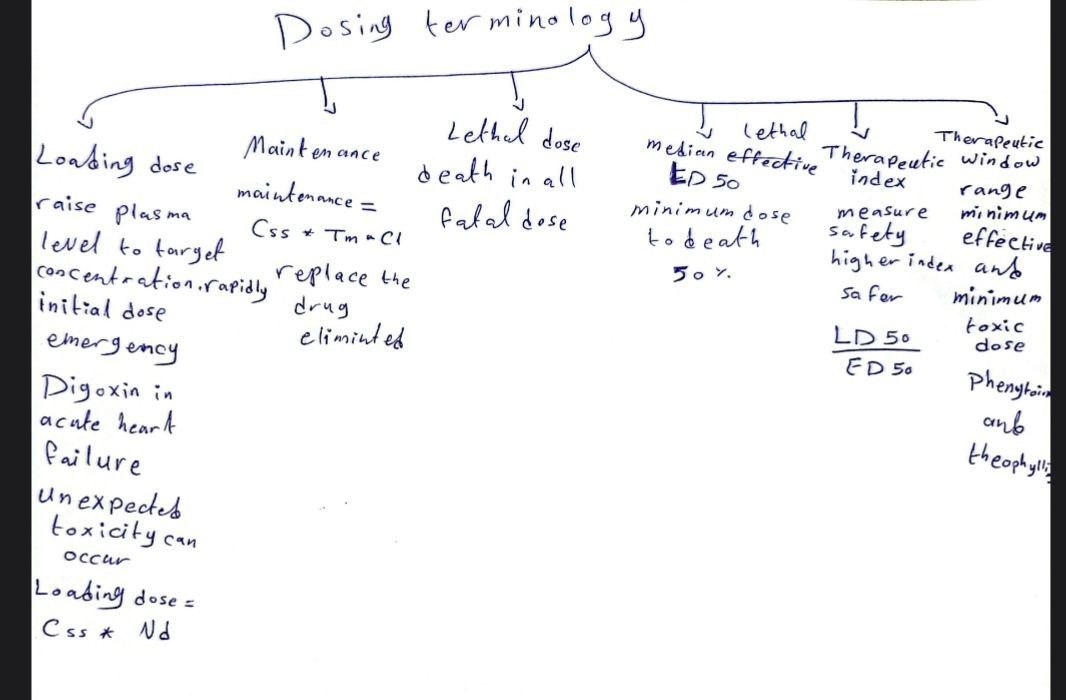 Dosing terminology
Loading dose
raise plasma
level to target
concentration. rapidly
initial dose
emergency
Digoxin in
acute heart
failure
unexpected
toxicity can
occur
Loading dose =
Css * Vd
Maintenance
maintenance =
Css * Tm - Cl
replace the
drug
eliminted
Lethal dose
death in all
fatal dose
lethal
median effective
ED 50
minimum dose
to death
50 %
Therapeutic
index
measure
safety
higher index
safer
LD 50
ED 50
Therapeutic
window
range
minimum
effective
and
minimum
toxic
dose
Phenytoin
and
theophylli